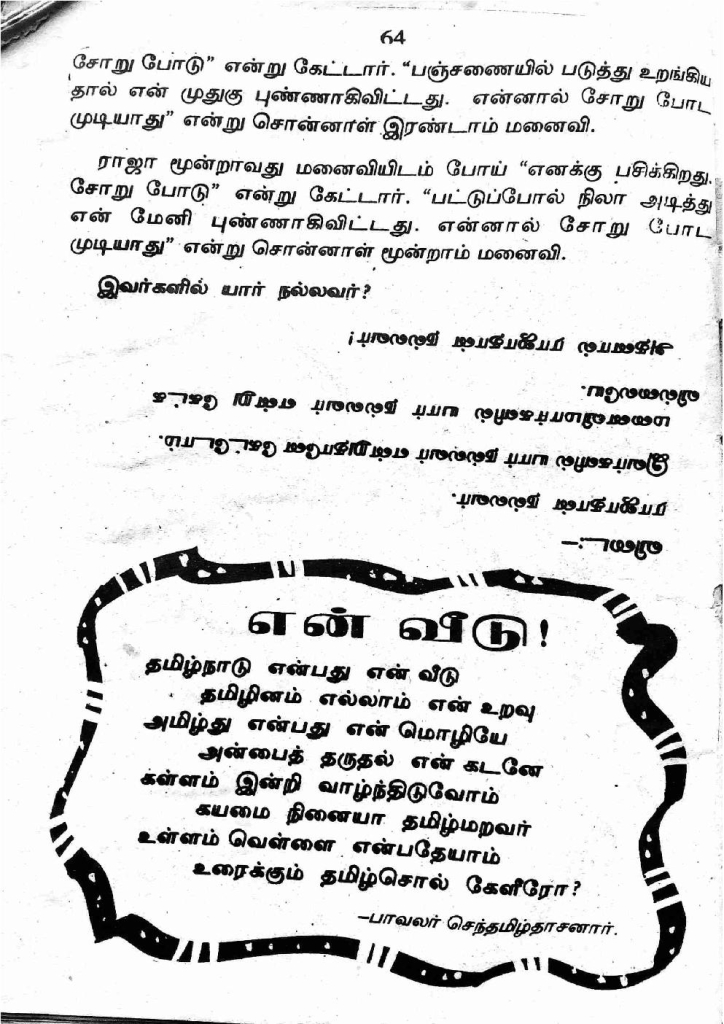 64
சோறு போடு” என்று கேட்டார். “பஞ்சணையில் படுத்து உறங்கிய
தால் என் முதுகு புண்ணாகிவிட்டது. என்னால் சோறு போட
முடியாது” என்று சொன்னாள் இரண்டாம் மனைவி.
ராஜா மூன்றாவது மனைவியிடம் போய் “எனக்கு பசிக்கிறது.
சோறு போடு” என்று கேட்டார். “பட்டுப்போல் நிலா அடித்து
என் மேனி புண்ணாகிவிட்டது. என்னால் சோறு போட
முடியாது” என்று சொன்னாள் மூன்றாம் மனைவி.
இவர்களில் யார் நல்லவர்?
விடை:—
ராஜாதான் நல்லவர்.
இவர்களில் யார் நல்லவர் என்றுதானே கேட்டோம்.
மனைவிமார்களில் யார் நல்லவர் என்று கேட்க
வில்லையே.
அதனால் ராஜாதான் நல்லவர்!
என் வீடு!
தமிழ்நாடு என்பது என் வீடு
தமிழினம் எல்லாம் என் உறவு
அமிழ்து என்பது என் மொழியே
அன்பைத் தருதல் என் கடனே
கள்ளம் இன்றி வாழ்ந்திடுவோம்
கயமை நினையா தமிழ்மறவர்
உள்ளம் வெள்ளை என்பதேயாம்
உரைக்கும் தமிழ்சொல் கேளீரோ?
—பாவலர் செந்தமிழ்தாசனார்.